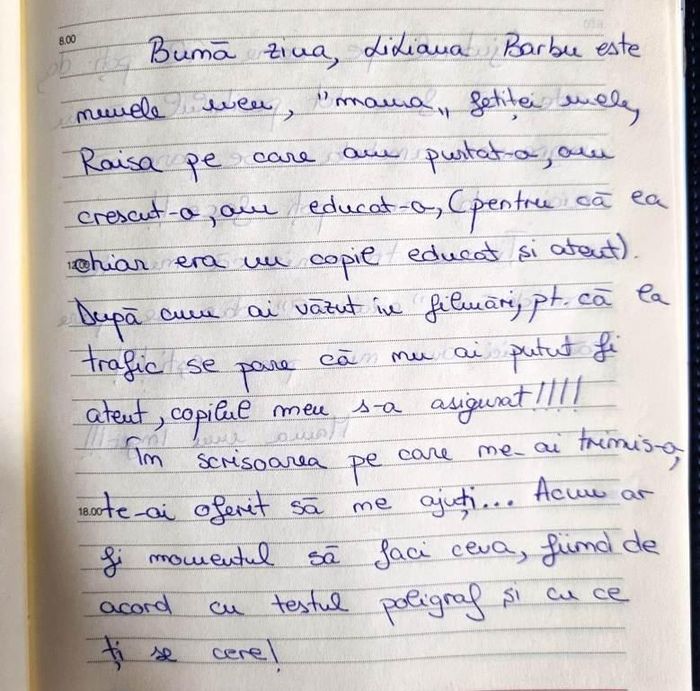 8.00
Bună ziua, Liliana Barbu este
numele meu, "mama„ fetiței mele,
Raisa pe care am purtat-o, am
crescut-o, am educat-o, (pentru că ea
chiar era un copil educat și atent).
După cum ai văzut în filmări, pt. că la
trafic se pare că nu ai putut fi
atent, copilul meu s-a asigurat!!!!
În scrisoarea pe care ne-ai trimis-o,
18.00 te-ai oferit să ne ajuți... Acum ar
fi momentul să faci ceva, fiind de
acord cu testul poligraf și cu ce
ți se cere!